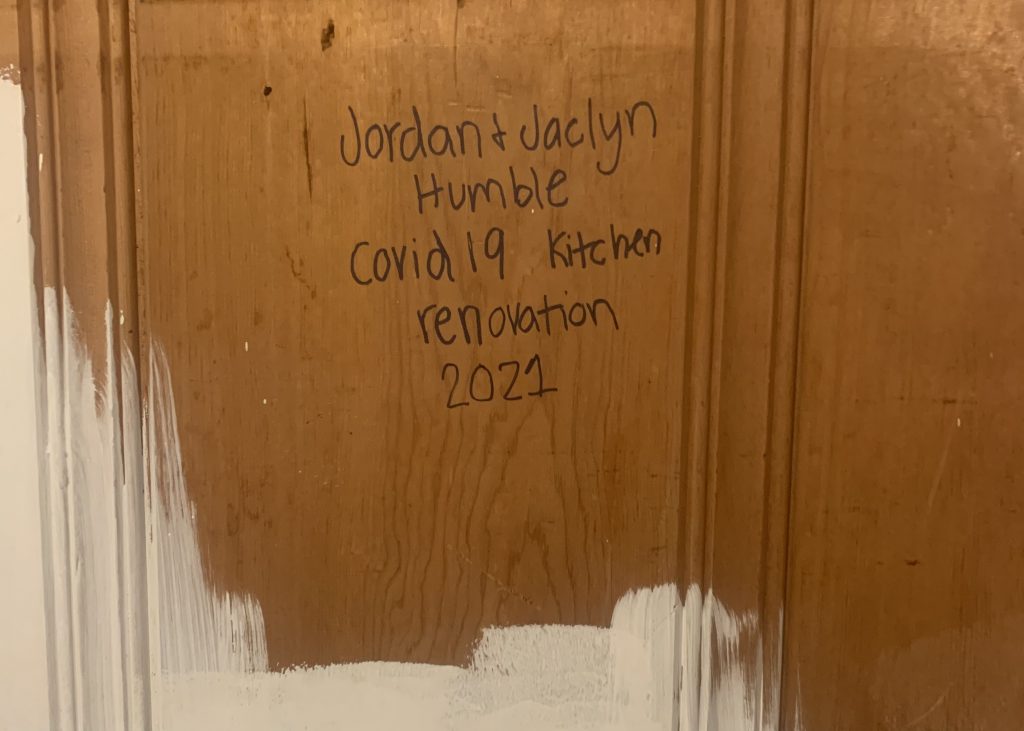 Jordan + Jaclyn
Humble
Covid 19 Kitchen
renovation
2021